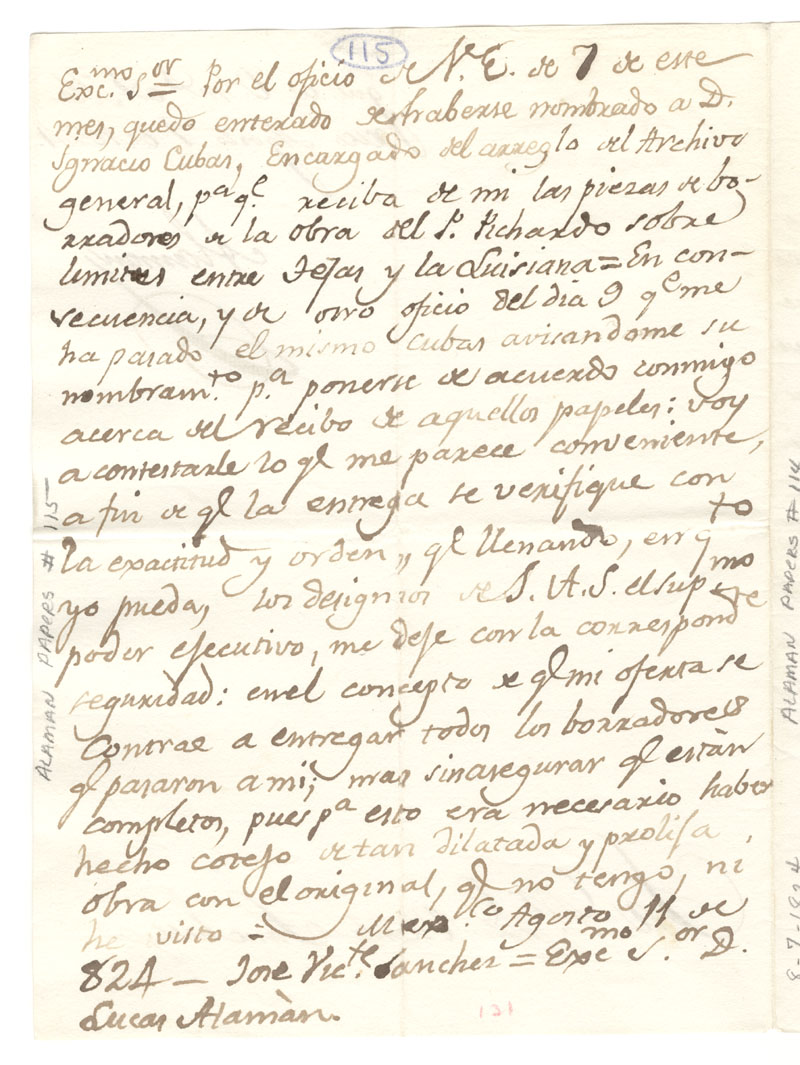 115
Exc.mo S.or Por el oficio de V.E. de 7 de este
mes, quedo enterado de haberse nombrado a D.
Ignacio Cubas, Encargado del arreglo del Archivo
general, pa qe. reciba de mi las piezas de bo-
rradores de la obra del P. Pichardo sobre
limites entre Tejas y la Luisiana = En con-
secuencia, y de otro oficio del dia 9 qe me
ha pasado el mismo Cubas avisandome su
nombram.to p.a ponerse de acuerdo conmigo
acerca del recibo de aquellos papeles: voy
a contestarle lo q.e me parece conveniente,
a fin de q.e la entrega se verifique con
la exactitud y orden,, q.e llenando, en q.to
yo pueda, los designios de S.A.S. el sup.mo
poder ejecutivo, me deje con la correspond.te
seguridad: en el concepto de q.e mi oferta se
Contrae a entregar todos los borradores
q.e pasaron a mi; mas sin asegurar q.e están
completos, pues pa esto era necesario haber
hecho cotejo de tan dilatada y prolija
obra con el original, q.e no tengo, ni
he visto = Mex.co Agosto 11 de
824 — Jose Vic.te Sanchez = Exc.mo S.or D.
Lucas Alamàn.
131
ALAMAN PAPERS # 115
ALAMAN PAPERS # 114
8-7-1824